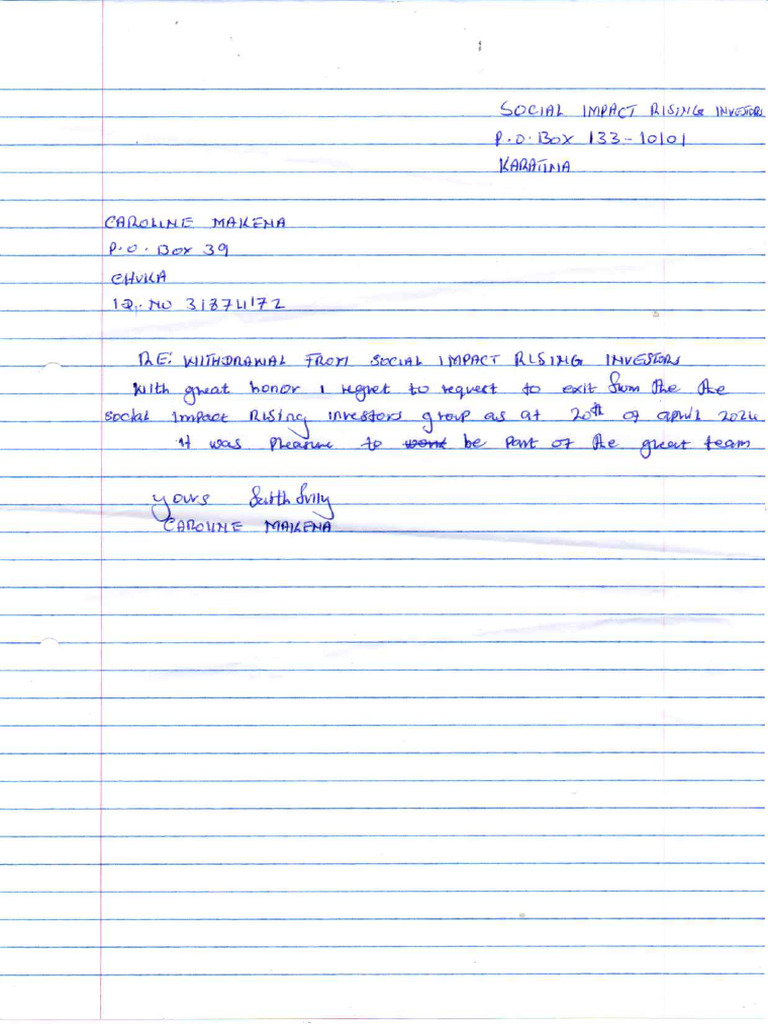 SOCIAL IMPACT RISING INVESTORS
P.O. BOX 133-10101
KARATINA
CAROLINE MAKENA
P.O. BOX 39
CHUKA
ID. NO 31874172
RE: WITHDRAWAL FROM SOCIAL IMPACT RISING INVESTORS
With great honor I regret to request to exit from the the
social Impact Rising investors group as at 20th of april 2024
it was pleasure to be part of the great team
yours faithfully
CAROLINE MAKENA